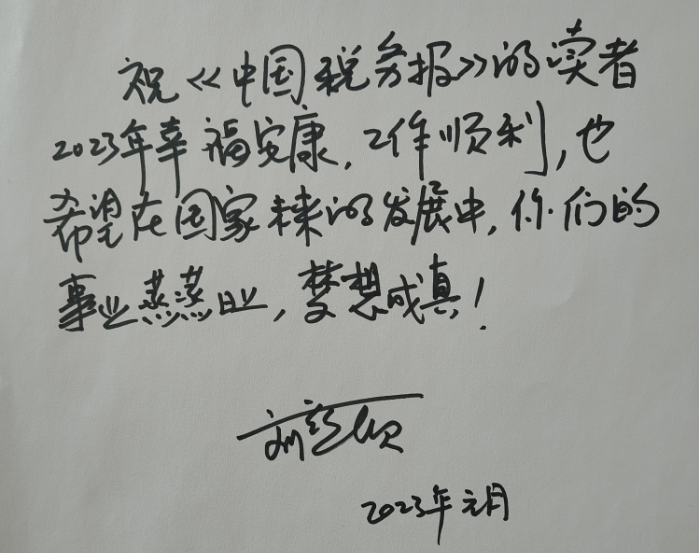 祝《中国税务报》的读者
2023年幸福安康，工作顺利，也
希望在国家未来的发展中，你们的
事业蒸蒸日业，梦想成真！
2023年元月